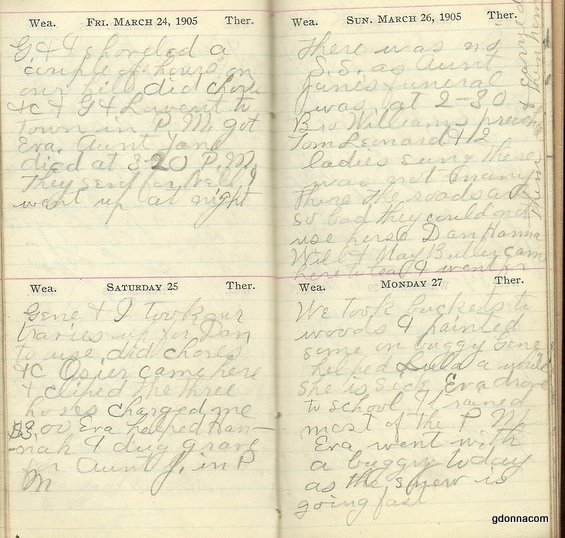 Wea. FRI. MARCH 24, 1905 Ther.
G. & I shoveled a
couple of hours on
our hill, did chores
&c & G & L went to
town in P.M. got
Eva. Aunt Jane
died at 3-20 P.M.
They sent for
went up at night
Wea. SATURDAY 25 Ther.
Gene & I took our
up for Dan
to use, did chores
&c Osier came here
& cliped the three
horses charged me
$3.00 Eva helped Han-
-nah I dug grave
for Aunt J. in P
M
Wea. SUN. MARCH 26, 1905 Ther.
There was no
S.S. as Aunt
Janes funeral
was at 2-30
Bro Williams preach
Tom Leonard & 2
ladies sung there
was not many
there the roads are
so bad they could not
use hearse Dan Hanna
Will & May came
here to tea I went
Wea. MONDAY 27 Ther.
We took buckets to
woods & painted
some on buggy Gene
helped Lula a while
she is sick Eva drove
to school I rained
most of the P.M.
Eva went with
a buggy today
as the snow is
going fast
gdonnacom